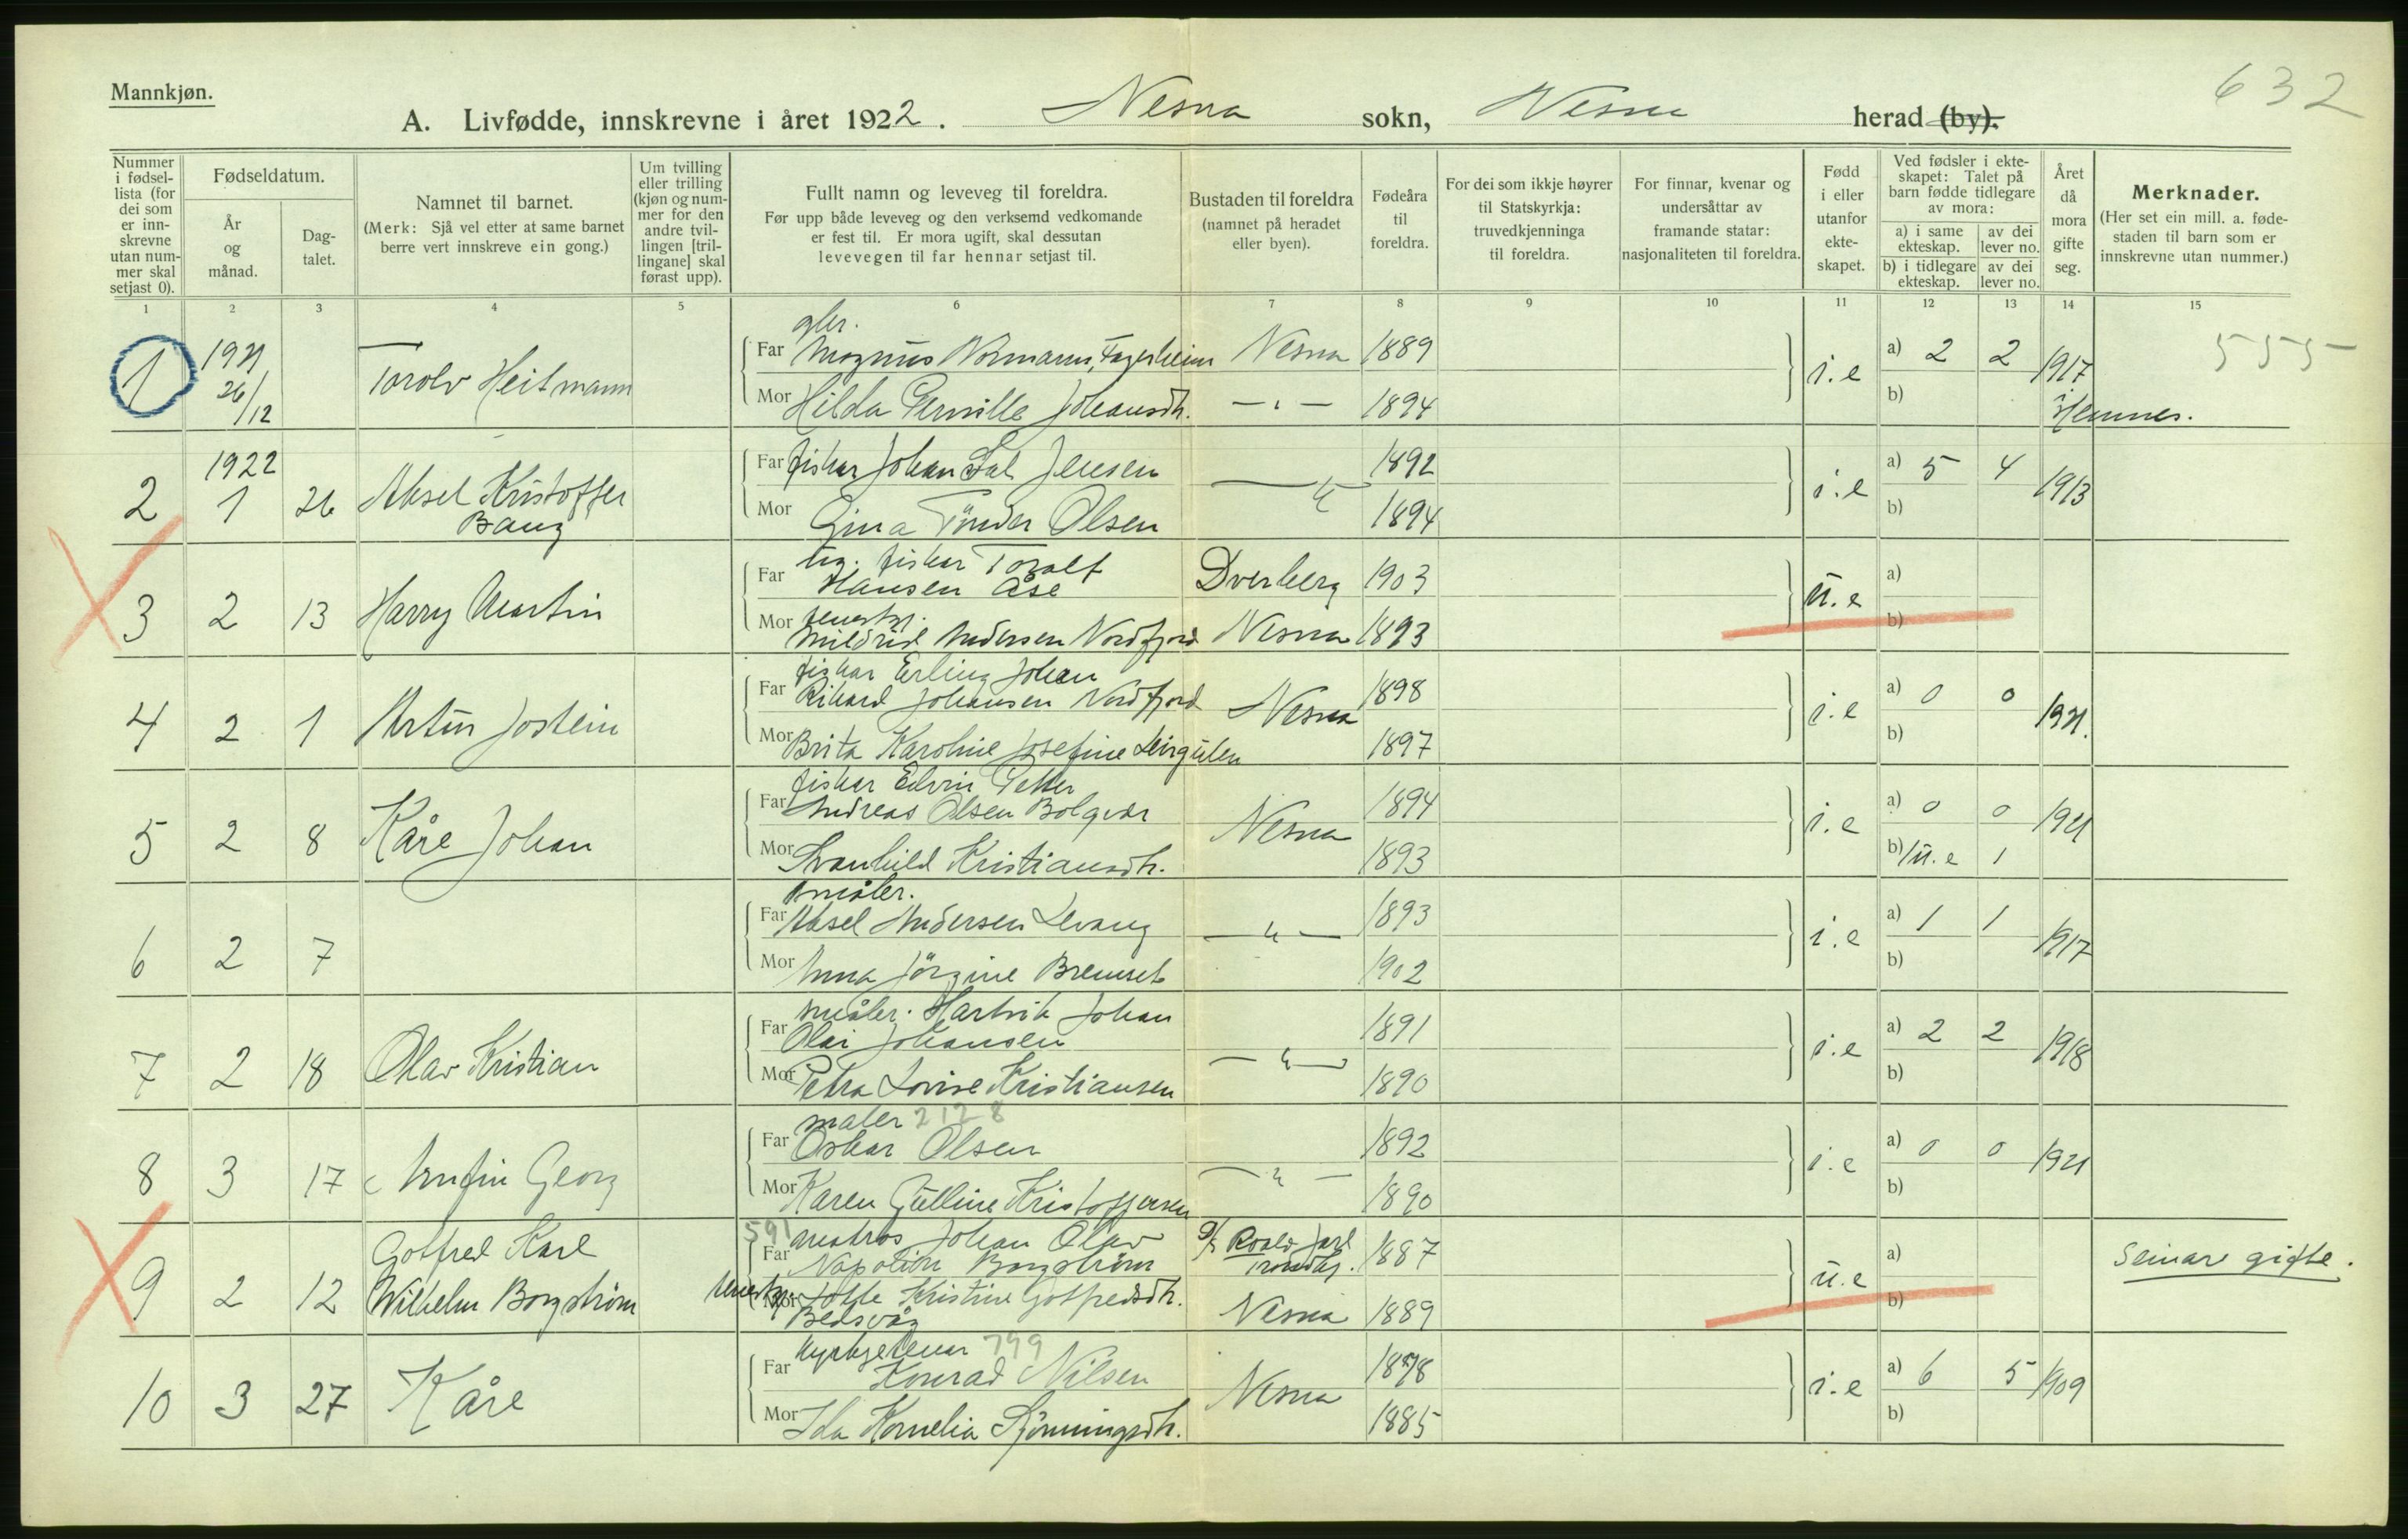 632
Mannkjøn.
A. Livfødde, innskrevne i året 1922. Nesna sokn, Nesna herad (by).
Nummer i fødsel-lista (for dei som er inn-skrevne utan num-mer skal setjast 0).
Fødseldatum.
År og månad.
Dag-talet.
Namnet til barnet.
(Merk: Sjå vel etter at same barnet berre vert innskreve ein gong.)
Um tvilling eller trilling (kjøn og num-mer for den andre tvil-lingen [tril-lingane] skal førast upp).
Fullt namn og leveveg til foreldra.
Før upp både leveveg og den verksemd vedkomande er fest til. Er mora ugift, skal dessutan levevegen til far hennar setjast til.
Bustaden til foreldra (namnet på heradet eller byen).
Fødeåra til foreldra.
For dei som ikkje høyrer til Statskyrkja: truvedkjenninga til foreldra.
For finnar, kvenar og undersåttar av framande statar: nasjonaliteten til foreldra.
Fødd i eller utanfor ekte-skapet.
Ved fødsler i ekte-skapet: Talet på barn fødde tidlegare av mora:
a) i same ekteskap.
av dei lever no.
b) i tidlegare ekteskap.
av dei lever no.
Året då mora gifte seg.
Merknader.
(Her set ein mill. a. føde-staden til barn som er innskrevne utan nummer.)
1 2 3 4 5 6 7 8 9 10 11 12 13 14 15
1 1921 26/12 Torolv Heitmann
Far Magnus Normann, Fagerheim Nesna 1889
Mor Hilda Pernille Johansdtr. — " — 1894
i.e a) 2 2 b) 1917
Hemnes. 555
2 1922 1 26 Aksel Kristoffer
Bang
Far fiskar Johan Jensen 1892
Mor Gina Tönder Olsen — " — 1894
i.e a) 5 4 b) 1913
3 2 13 Harry Martin
Far ug. fiskar Toralf
Hansen Åse Dverberg 1903
Mor tenestgj.
Mildrid Andersen Nordfjord Nesna 1893
u.e a) b)
4 2 1 Artur Jostein
Far fiskar Erling Johan
Rikard Johansen Nordfjord Nesna 1898
Mor Brita Karoline Josefine Leirgulen 1897
i.e a) 0 0 b) 1921.
5 2 8 Kåre Johan
Far fiskar Edvin Petter
Andreas Olsen Bolgvær Nesna 1894
Mor Svanhild Kristiansdtr. 1893
i.e a) 0 0 b) 1 u.e 1 1921
6 2 7
småbr.
Far Aksel Andersen Levang — " — 1893
Mor Anna Jörgine Bremset 1902
i.e a) 1 1 b) 1917
7 2 18 Olav Kristian
Far småbr. Hartvik Johan
Olai Johansen — " — 1891
Mor Petra Lovise Kristiansen 1890
i.e a) 2 2 b) 1918
8 3 17 Arnfin Georg
maler 2128
Far Oskar Olsen — " — 1892
Mor Karen Gulline Kristoffersen 1890
i.e a) 0 0 b) 1921
9 2 12 Gotfred Karl
Wilhelm Borgström
591
Far matros Johan Olav
Napoleon Borgström D/S Roald Jarl
Trondhj. 1887
Mor tenestgj. Lotte Kristine Gotfredsdtr.
Bedsvåg Nesna 1889
u.e a) b)
Seinare gifte.
10 3 27 Kåre
kyrkjetenar 799
Far Konrad Nilsen Nesna 1878
Mor Ida Kornelia Sjönningsdtr. 1885
i.e a) 6 5 b) 1909